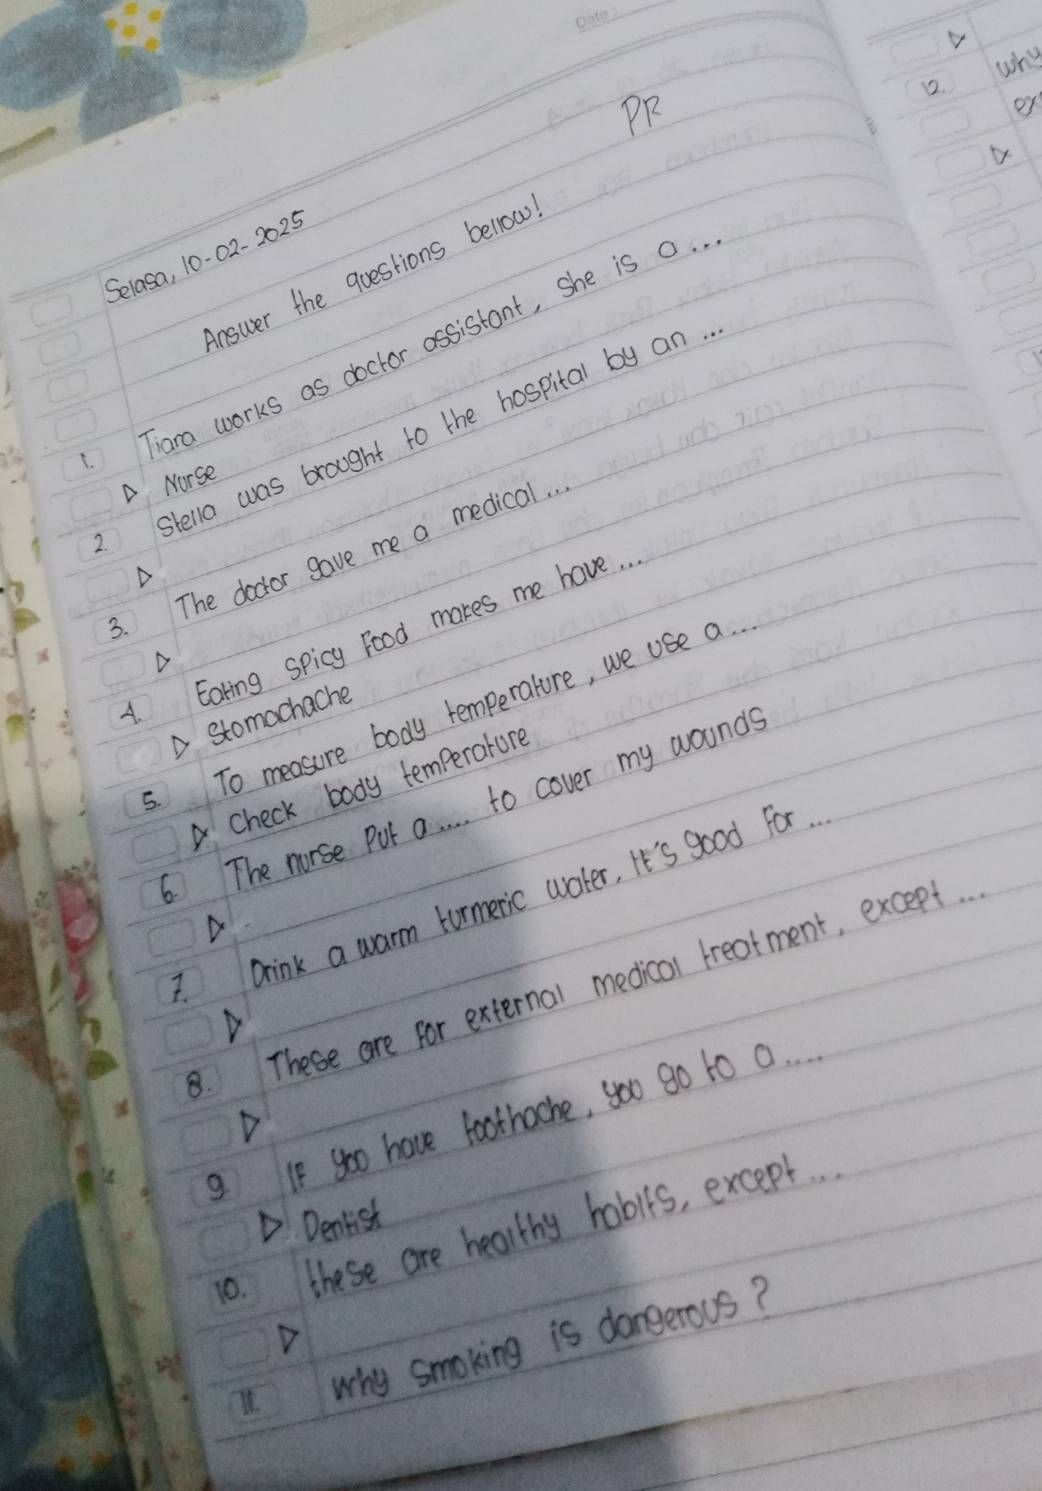 Date:
PR
Selasa, 10-02-2025
Answer the questions bellow!
1. Tiara works as doctor assistant, she is a...
Nurse
2. Stella was brought to the hospital by an...
3. The doctor gave me a medical...
4. Eating spicy food makes me have...
Stomachache
5. To measure body temperature, we use a...
Check body temperature
6. The nurse put a.... to cover my wounds
7. Drink a warm turmeric water, it's good for...
8. These are for external medical treatment, except...
9. If you have toothache, you go to a....
Dentist
10. these are healthy habits, except...
11. why smoking is dangerous?
12. why